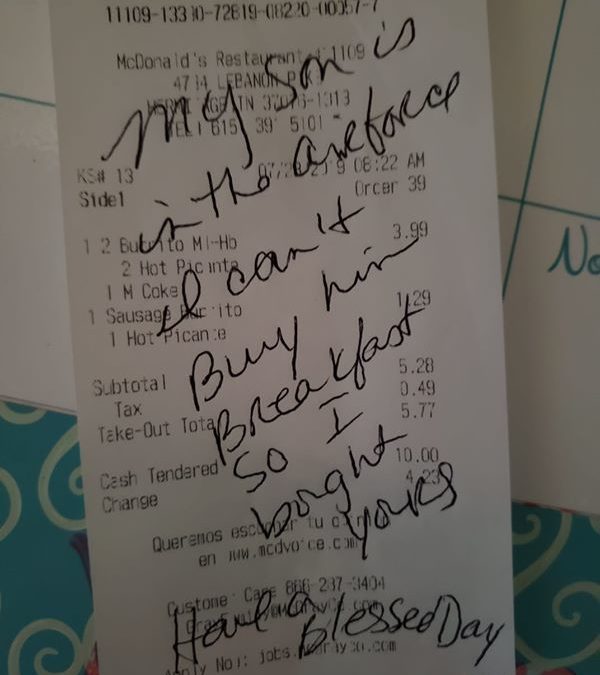 11109-13330-72819-08220-00057-7
McDonald's Restaurant 1109
4714 LEBANON
TN 37076-1313
615 39 5101
KS# 13 07/2 2019 08:22 AM
Side1 Order 39
1 2 Burrito Ml-Hb 3.99
2 Hot Picante
1 M Coke
1 Sausage Burrito 1.29
1 Hot Picante
Subtotal 5.28
Tax 0.49
Take-Out Total 5.77
Cash Tendered 10.00
Change 4.23
Queremos escuchar tu
en www.mcdvoice.com
Custome Care 866-237-3404
Apply Now: jobs.
My Son is
in the aireforce
I can't
Buy him
Breakfast
So I
bought
yours
Have a
Blessed Day
No